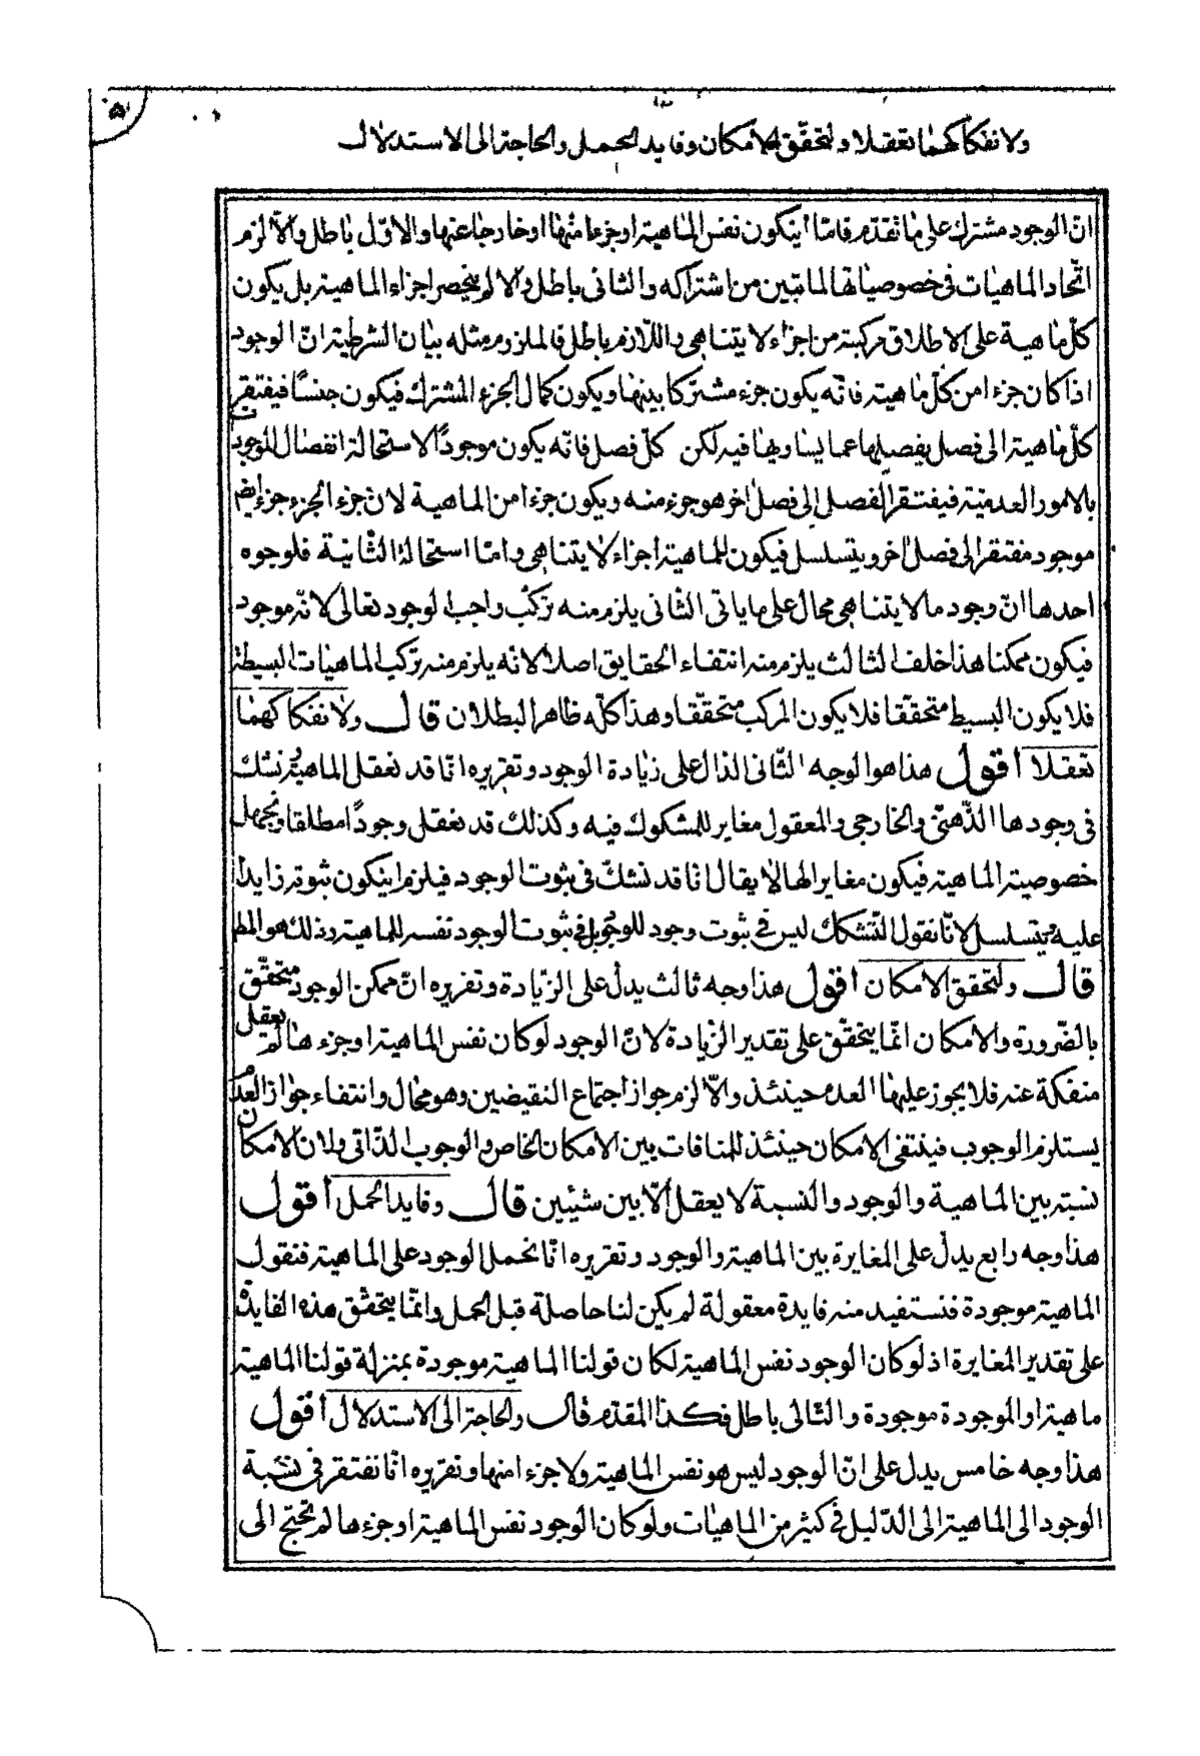 ٥
ولانفكاكهما تعقلا ولتحقّق الامكان وفايدة الحمل والحاجة الى الاستدلال
انّ الوجود مشترك على ما تقدّم فامّا ان يكون نفس الماهية او جزءا منها او خارجا عنها والاوّل باطل والّا لزم
اتّحاد الماهيات فى خصوصياتها لما تبين من اشتراكه والثانى باطل والا لم ينحصر اجزاء الماهية بل يكون
كلّ ماهية على الاطلاق مركبة من اجزاء لا يتناهى واللّازم باطل فالملزوم مثله بيان الشرطية انّ الوجود
اذا كان جزءا من كلّ ماهية فانّه يكون جزء مشتركا بينها ويكون كمال الجزء المشترك فيكون جنسًا فيفتقر
كلّ ماهية الى فصل يفصلها عما يساويها فيه لكن كلّ فصل فانّه يكون موجودًا لاستحالة انفصال الموجود
بالامور العدمية فيفتقر الفصل الى فصل اخر هو جزء منه ويكون جزءا من الماهية لان جزء الجزء جزء ايضا
موجود مفتقر الى فصل اخر ويتسلسل فيكون للماهية اجزاء لا يتناهى وامّا استحالة الثّانية فلوجوه
احدها انّ وجود ما لا يتناهى محال على ما ياتى الثّانى يلزم منه تركّب واجب الوجود تعالى لانّه موجود
فيكون ممكنا هذا خلف الثالث يلزم منه انتفاء الحقايق اصلا لانه يلزم منه تركيب الماهيات البسيطة
فلا يكون البسيط متحققا فلا يكون المركب متحققا وهذا كلّه ظاهر البطلان قال ولانفكاكهما
تعقلا اقول هذا هو الوجه الثّانى الدّال على زيادة الوجود وتقريره انّا قد نعقل الماهية ونشك
فى وجودها الذّهنى والخارجى والمعقول مغاير للمشكوك فيه وكذلك قد نعقل وجودًا مطلقا ونجهل
خصوصية الماهية فيكون مغايرا لها لا يقال انّا قد نشكّ فى ثبوت الوجود فيلزم ان يكون ثبوته زايدا
عليه ويتسلسل لانّا نقول التّشكك ليس فى ثبوت وجود للوجود بل فى ثبوت الوجود نفسه للماهية وذلك هو المط
قال ولتحقق الامكان اقول هذا وجه ثالث يدلّ على الزّيادة وتقريره انّ ممكن الوجود متحقّق
بالضّرورة والامكان انّما يتحقّق على تقدير الزّيادة لانّ الوجود لو كان نفس الماهية او جزءها لم تعقل
منفكة عنه فلا يجوز عليها العدم حينئذ والّا لزم جواز اجتماع النقيضين وهو محال وانتفاء جواز العدم
يستلزم الوجوب فينتفى الامكان حينئذ للمنافات بين الامكان الخاص والوجوب الذّاتى ولان الامكان
نسبة بين الماهية والوجود والنسبة لا يعقل الّا بين شيئين قال وفايدة الحمل اقول
هذا وجه رابع يدلّ على المغايرة بين الماهية والوجود وتقريره انّا نحمل الوجود على الماهية فنقول
الماهية موجودة فنستفيد منه فايدة معقولة لم يكن لنا حاصلة قبل الحمل وانّما يتحقّق هذه الفايدة
على تقدير المغايرة اذ لو كان الوجود نفس الماهية لكان قولنا الماهية موجودة بمنزلة قولنا الماهية
ماهية او الموجودة موجودة والتّالى باطل فكذا المقدّم قال والحاجة الى الاستدلال اقول
هذا وجه خامس يدل على انّ الوجود ليس هو نفس الماهية ولا جزءا منها وتقريره انّا نفتقر فى نسبة
الوجود الى الماهية الى الدّليل فى كثير من الماهيات ولو كان الوجود نفس الماهية او جزءها لم تحتج الى